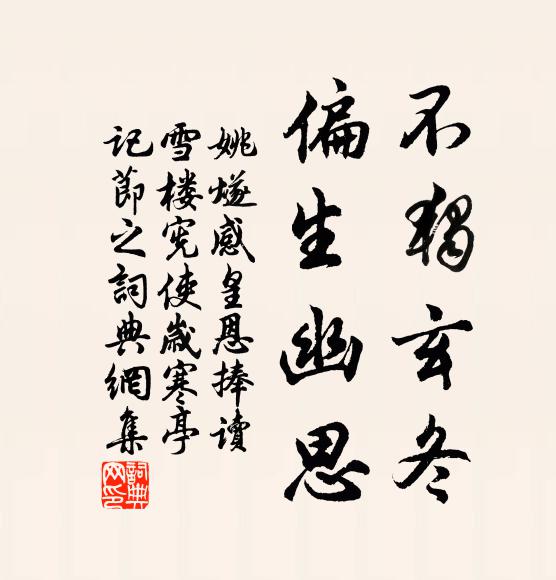 不独玄冬
偏生幽思
姚燧感皇恩捧读
雪楼宪使岁寒亭
记节之词典网集
词典网印